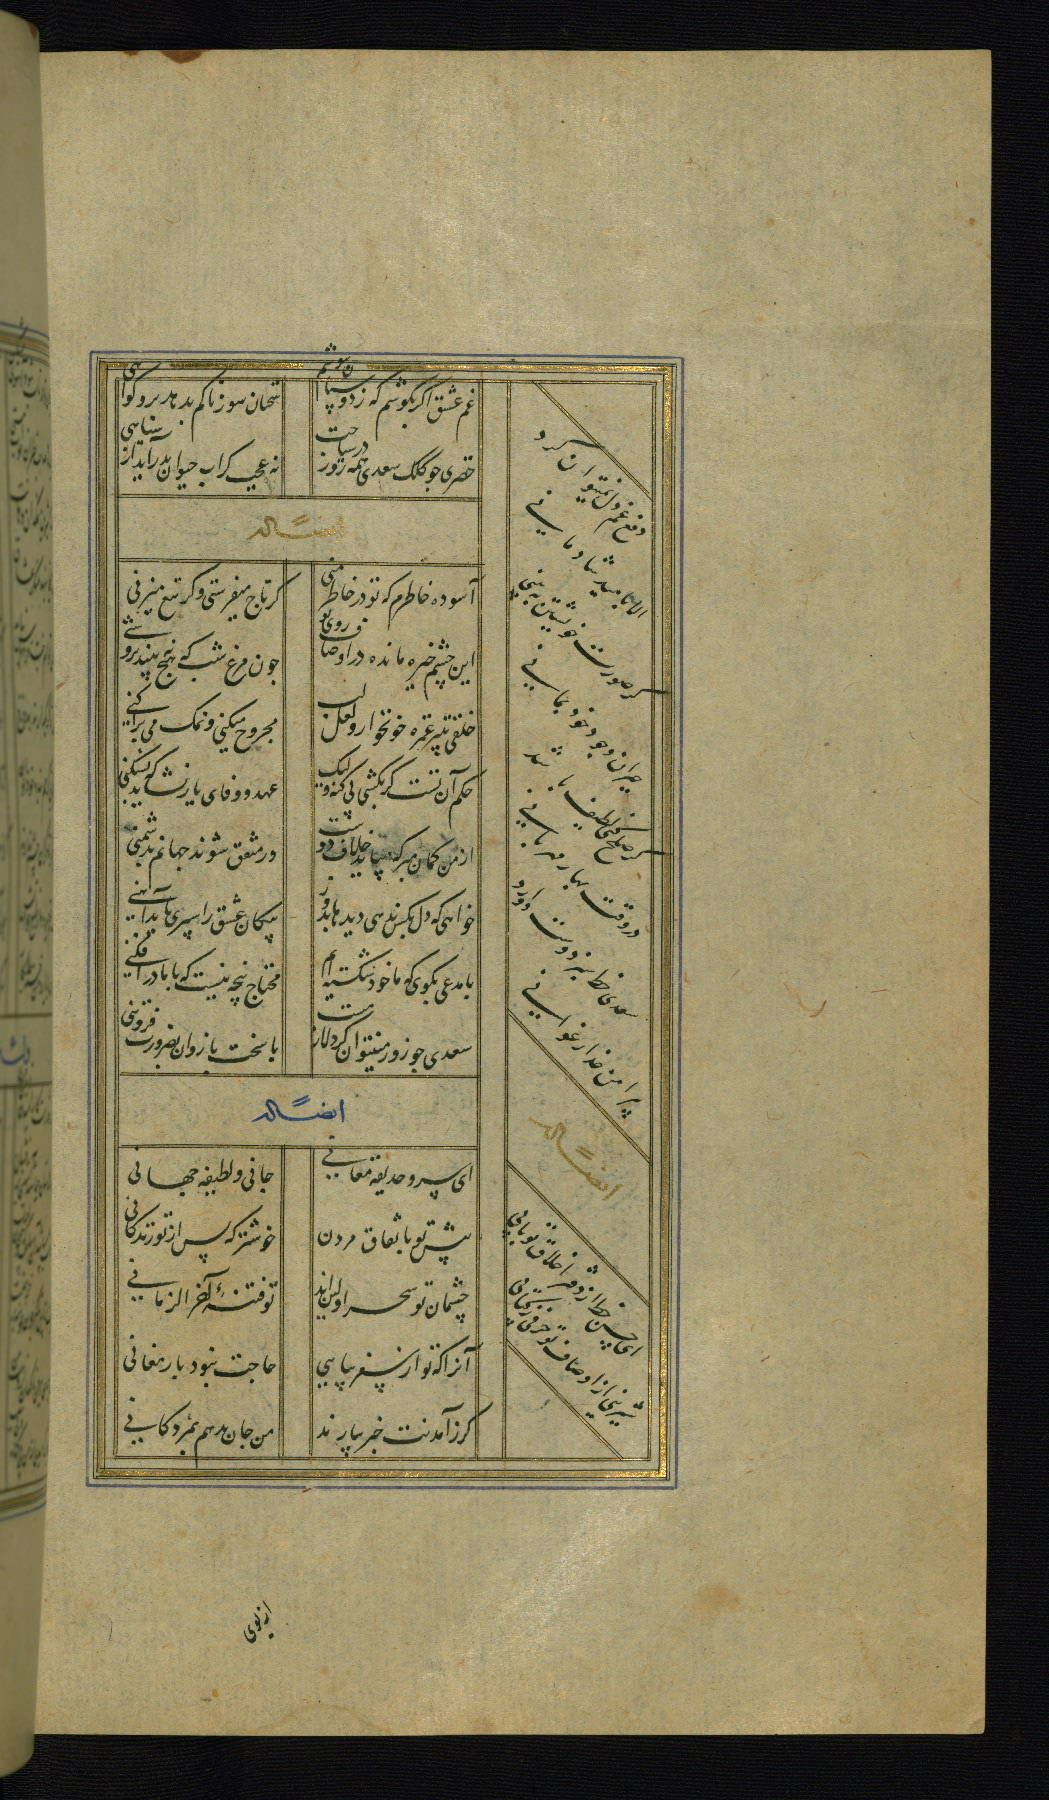 غم عشق اکر بکوشم که ز دوستان بپوشم
سخنان سوزناکم بدهد برو کواهی
خضری جو کلک سعدی همه روز در سیاحت
نه عجب کر آب حیوان بدر آید از سیاهی
ایضاً له
آسوده خاطرم که تو در خاطر منی
کر تاج میفرستی و کر تیغ میزنی
این چشم خیره مانده در اوصاف روی تو
جون مرغ شب که هیچ نبیند بروشنی
خلقی بتیر غمزه خونخوار و لعل لب
مجروح میکنی و نمک می پراکنی
حکم آن تست کر بکشی بی کنه ولیک
عهد و وفای یار نشاید که بشکنی
از من کمان مبر که بیاید خلاف دوست
ور متفق شوند جهانم بدشمنی
خواهی که دل بکس ندهی دیدها بدوز
پیکان عشق را سپری باید آهنی
با مدعی بکوی که ما خود شکسته ایم
محتاج پنجه نیست که با ما در افکنی
سعدی جو زورمند نتوان کرد لازمست
با سخت بازوان بضرورت فروتنی
ایضاً له
ای سرو حدیقه معانی
جانی و لطیفه جهانی
پیش تو باتفاق مردن
خوشتر که پس از تو زندکانی
چشمان تو سحر اولین اند
تو فتنه آخر الزمانی
آنرا که تو از سفر بیایی
حاجت نبود بارمغانی
کرز آمدنت خبر بیارند
من جان بدهم بمژدکانی
دفع غم دل نمیتوان کرد
الا بامید شادمانی
کر صورت خویشتن ببینی
حیران وجود خود بمانی
کر صلح کنی لطیف باشد
در وقت بهار مهربانی
سعدی خط سبز دوست دارد
پیرامن خد ارغوانی
ایضاً له
ای حسن خط از دفتر اخلاق تو بابی
شیرینی از اوصاف تو حرفی ز کتابی
از بوی